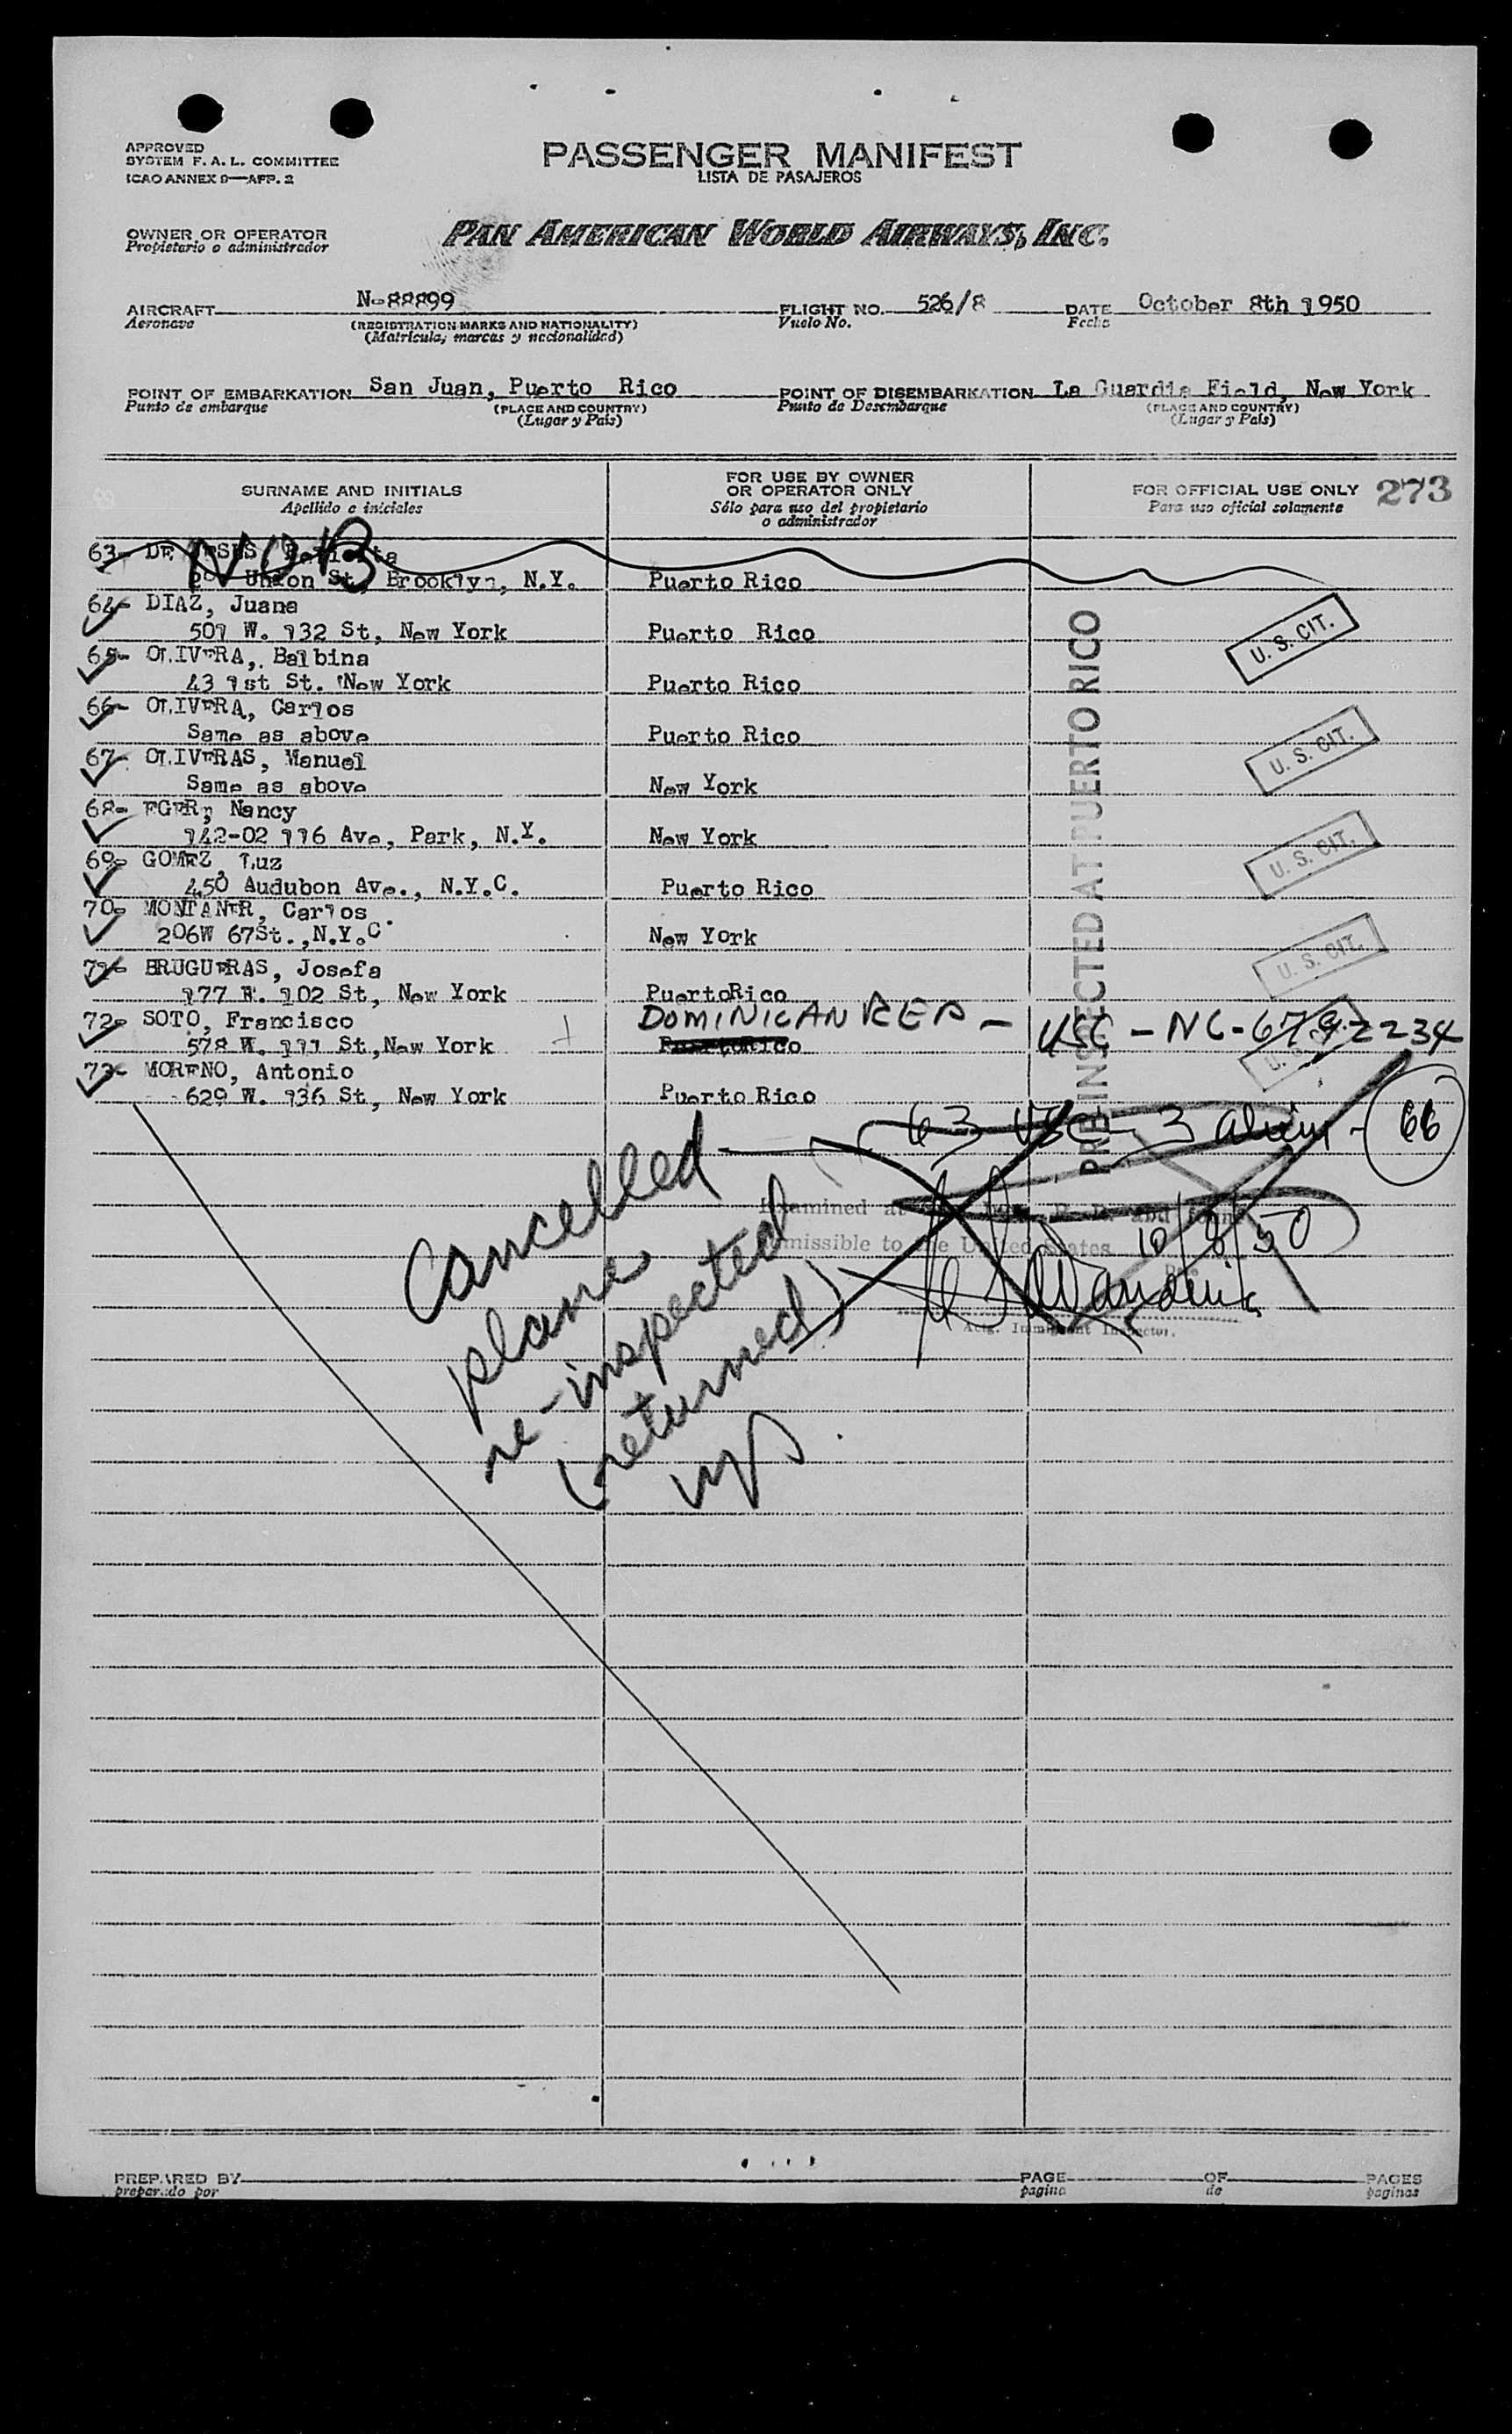 APPROVED
SYSTEM F. A. L. COMMITTEE
ICAO ANNEX 9—APP. 2
PASSENGER MANIFEST
LISTA DE PASAJEROS
OWNER OR OPERATOR
Propietario o administrador
PAN AMERICAN WORLD AIRWAYS, INC.
AIRCRAFT N-88899 FLIGHT NO. 526/8 DATE October 8th 1950
Aeronave (REGISTRATION MARKS AND NATIONALITY) Vuelo No. Fecha
(Matricula, marcas y nacionalidad)
POINT OF EMBARKATION San Juan, Puerto Rico POINT OF DISEMBARKATION La Guardia Field, New York
Punto de embarque (PLACE AND COUNTRY) Punto de Desembarque (PLACE AND COUNTRY)
(Lugar y País) (Lugar y País)
SURNAME AND INITIALS
Apellido e iniciales
FOR USE BY OWNER
OR OPERATOR ONLY
Sólo para uso del propietario
o administrador
FOR OFFICIAL USE ONLY 273
Para uso oficial solamente
63- DE JESUS,
NOB
Union St, Brooklyn, N.Y. Puerto Rico
64- DIAZ, Juana
501 W. 132 St, New York Puerto Rico
U. S. CIT.
65- OLIVERA, Balbina
43 1st St. New York Puerto Rico
66- OLIVERA, Carlos
Same as above Puerto Rico
U. S. CIT.
67- OLIVERAS, Manuel
Same as above New York
68- EGER, Nancy
142-02 116 Ave, Park, N.Y. New York
U. S. CIT.
69- GOMEZ, Luz
450 Audubon Ave., N.Y.C. Puerto Rico
70- MONTANER, Carlos
206W 67St., N.Y.C New York
U. S. CIT.
71- BRUGUERAS, Josefa
177 E. 102 St, New York PuertoRico
72- SOTO, Francisco DOMINICAN REP - USC - NC-
578 W. 171 St, New York PuertoRico
73- MORENO, Antonio
629 W. 136 St, New York Puerto Rico
PRE-INSPECTED AT PUERTO RICO
63 USC - 3 aliens - 66
Examined at and found
admissible to the United States 10/8/50
Date
Actg. Immigrant Inspector.
Cancelled
plane
re-inspected
(returned)
PREPARED BY PAGE OF PAGES
preparado por pagina de paginas